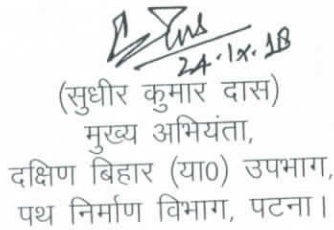 24.IX.18
(सुधीर कुमार दास)
मुख्य अभियंता,
दक्षिण बिहार (या0) उपभाग,
पथ निर्माण विभाग, पटना।